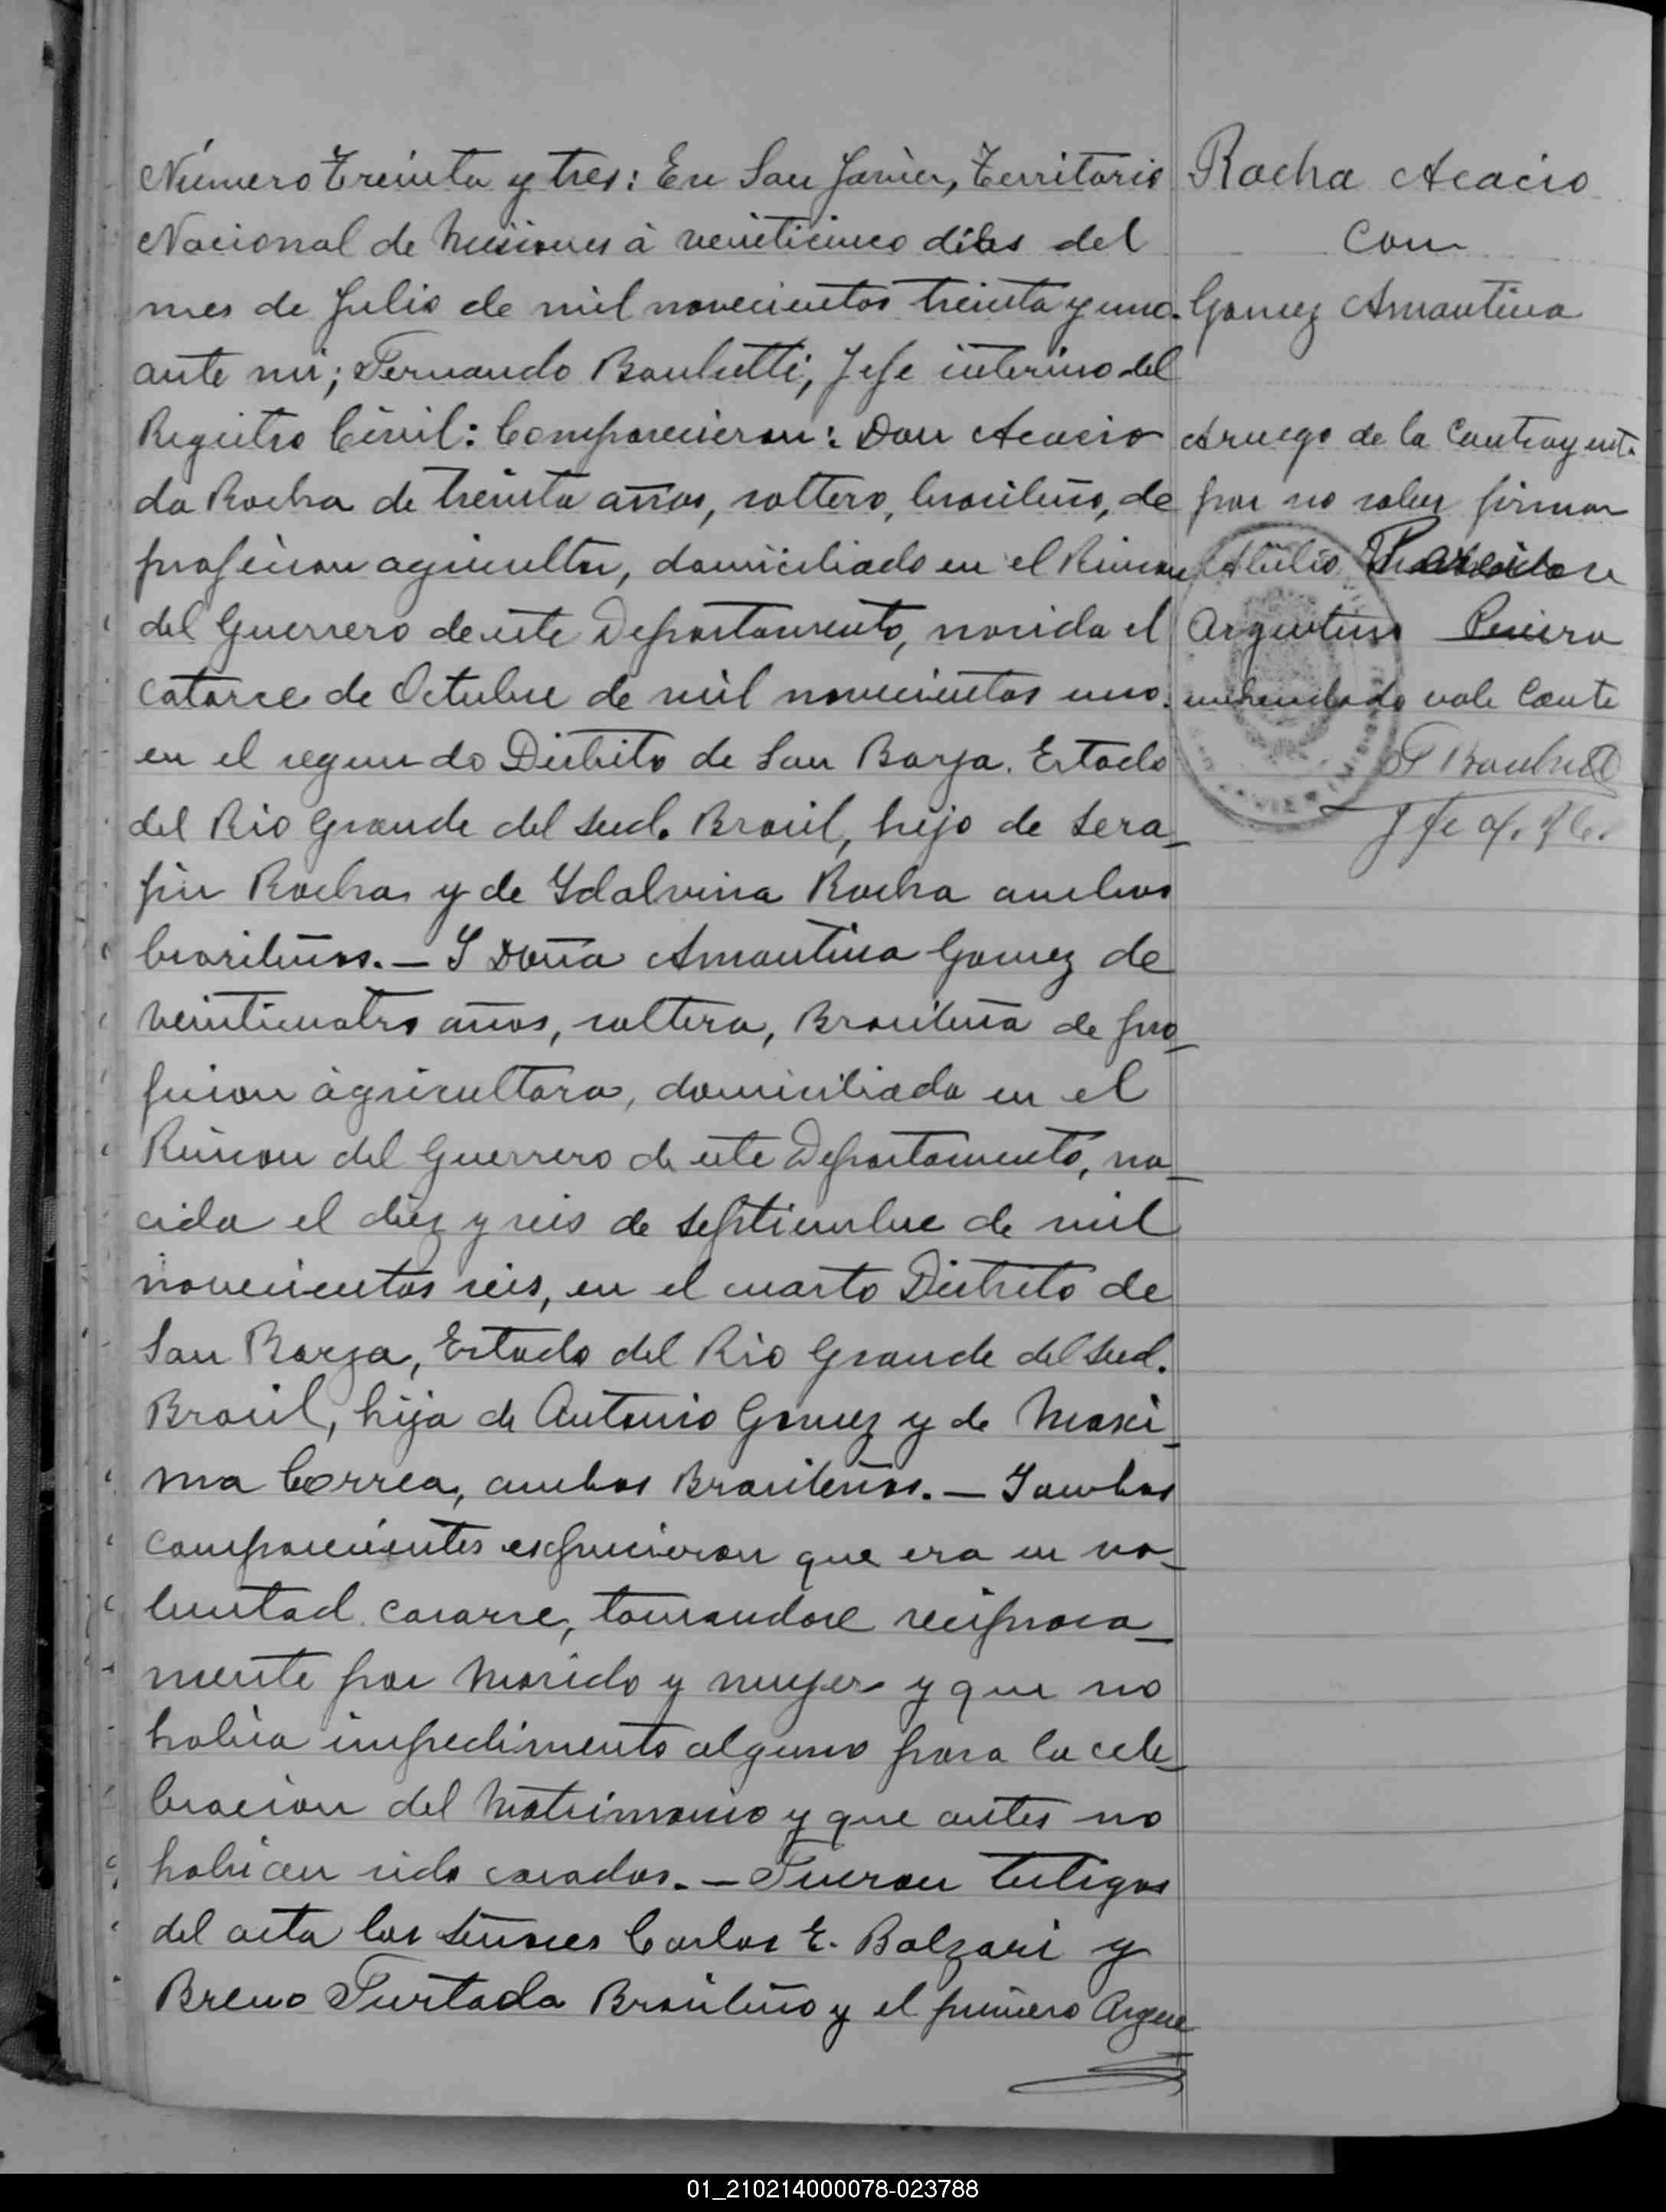 Número treinta y tres: En San Javier, Territorio
Nacional de Misiones à veinticinco dias del
mes de Julio de mil novecientos treinta y uno.
ante mi; Fernando Jefe interino del
Registro Civil: Comparecieron: Don Acacio
da Rocha de treinta años, soltero, brasileño, de
profesion agricultor, domiciliado en el Rincon
del Guerrero de este Departamento, nacido el
catorce de Octubre de mil novecientos uno.
en el segundo Distrito de San Borja. Estado
del Rio Grande del Sud. Brasil, hijo de Sera_
fin Rocha y de Ydalvina Rocha ambos
brasileños. — Y Doña Amantina Gomez de
veinticuatro años, soltera, Brasileña de pro_
fesion agricultora, domiciliada en el
Rincon del Guerrero de este Departamento, na_
cida el diez y seis de Septiembre de mil
novecientos seis, en el cuarto Distrito de
San Borja, Estado del Rio Grande del Sud.
Brasil, hija de Antonio Gomez y de Maxi_
ma Correa, ambos Brasileños. — Y ambos
comparecientes expusieron que era su vo_
luntad casarse, tomandose reciproca_
mente por Marido y mujer y que no
habia impedimento alguno para la cele_
bracion del Matrimonio y que antes no
habian sido casados. — Fueron testigos
del acta los Señores Carlos E. Balzari y
Breno Furtado Brasileño y el primero Argen_
Rocha Acacio
Con
Gomez Amantina
A ruego de la Contrayente
por no saber firmar
Atilio
Argentino
enmendado vale Conste